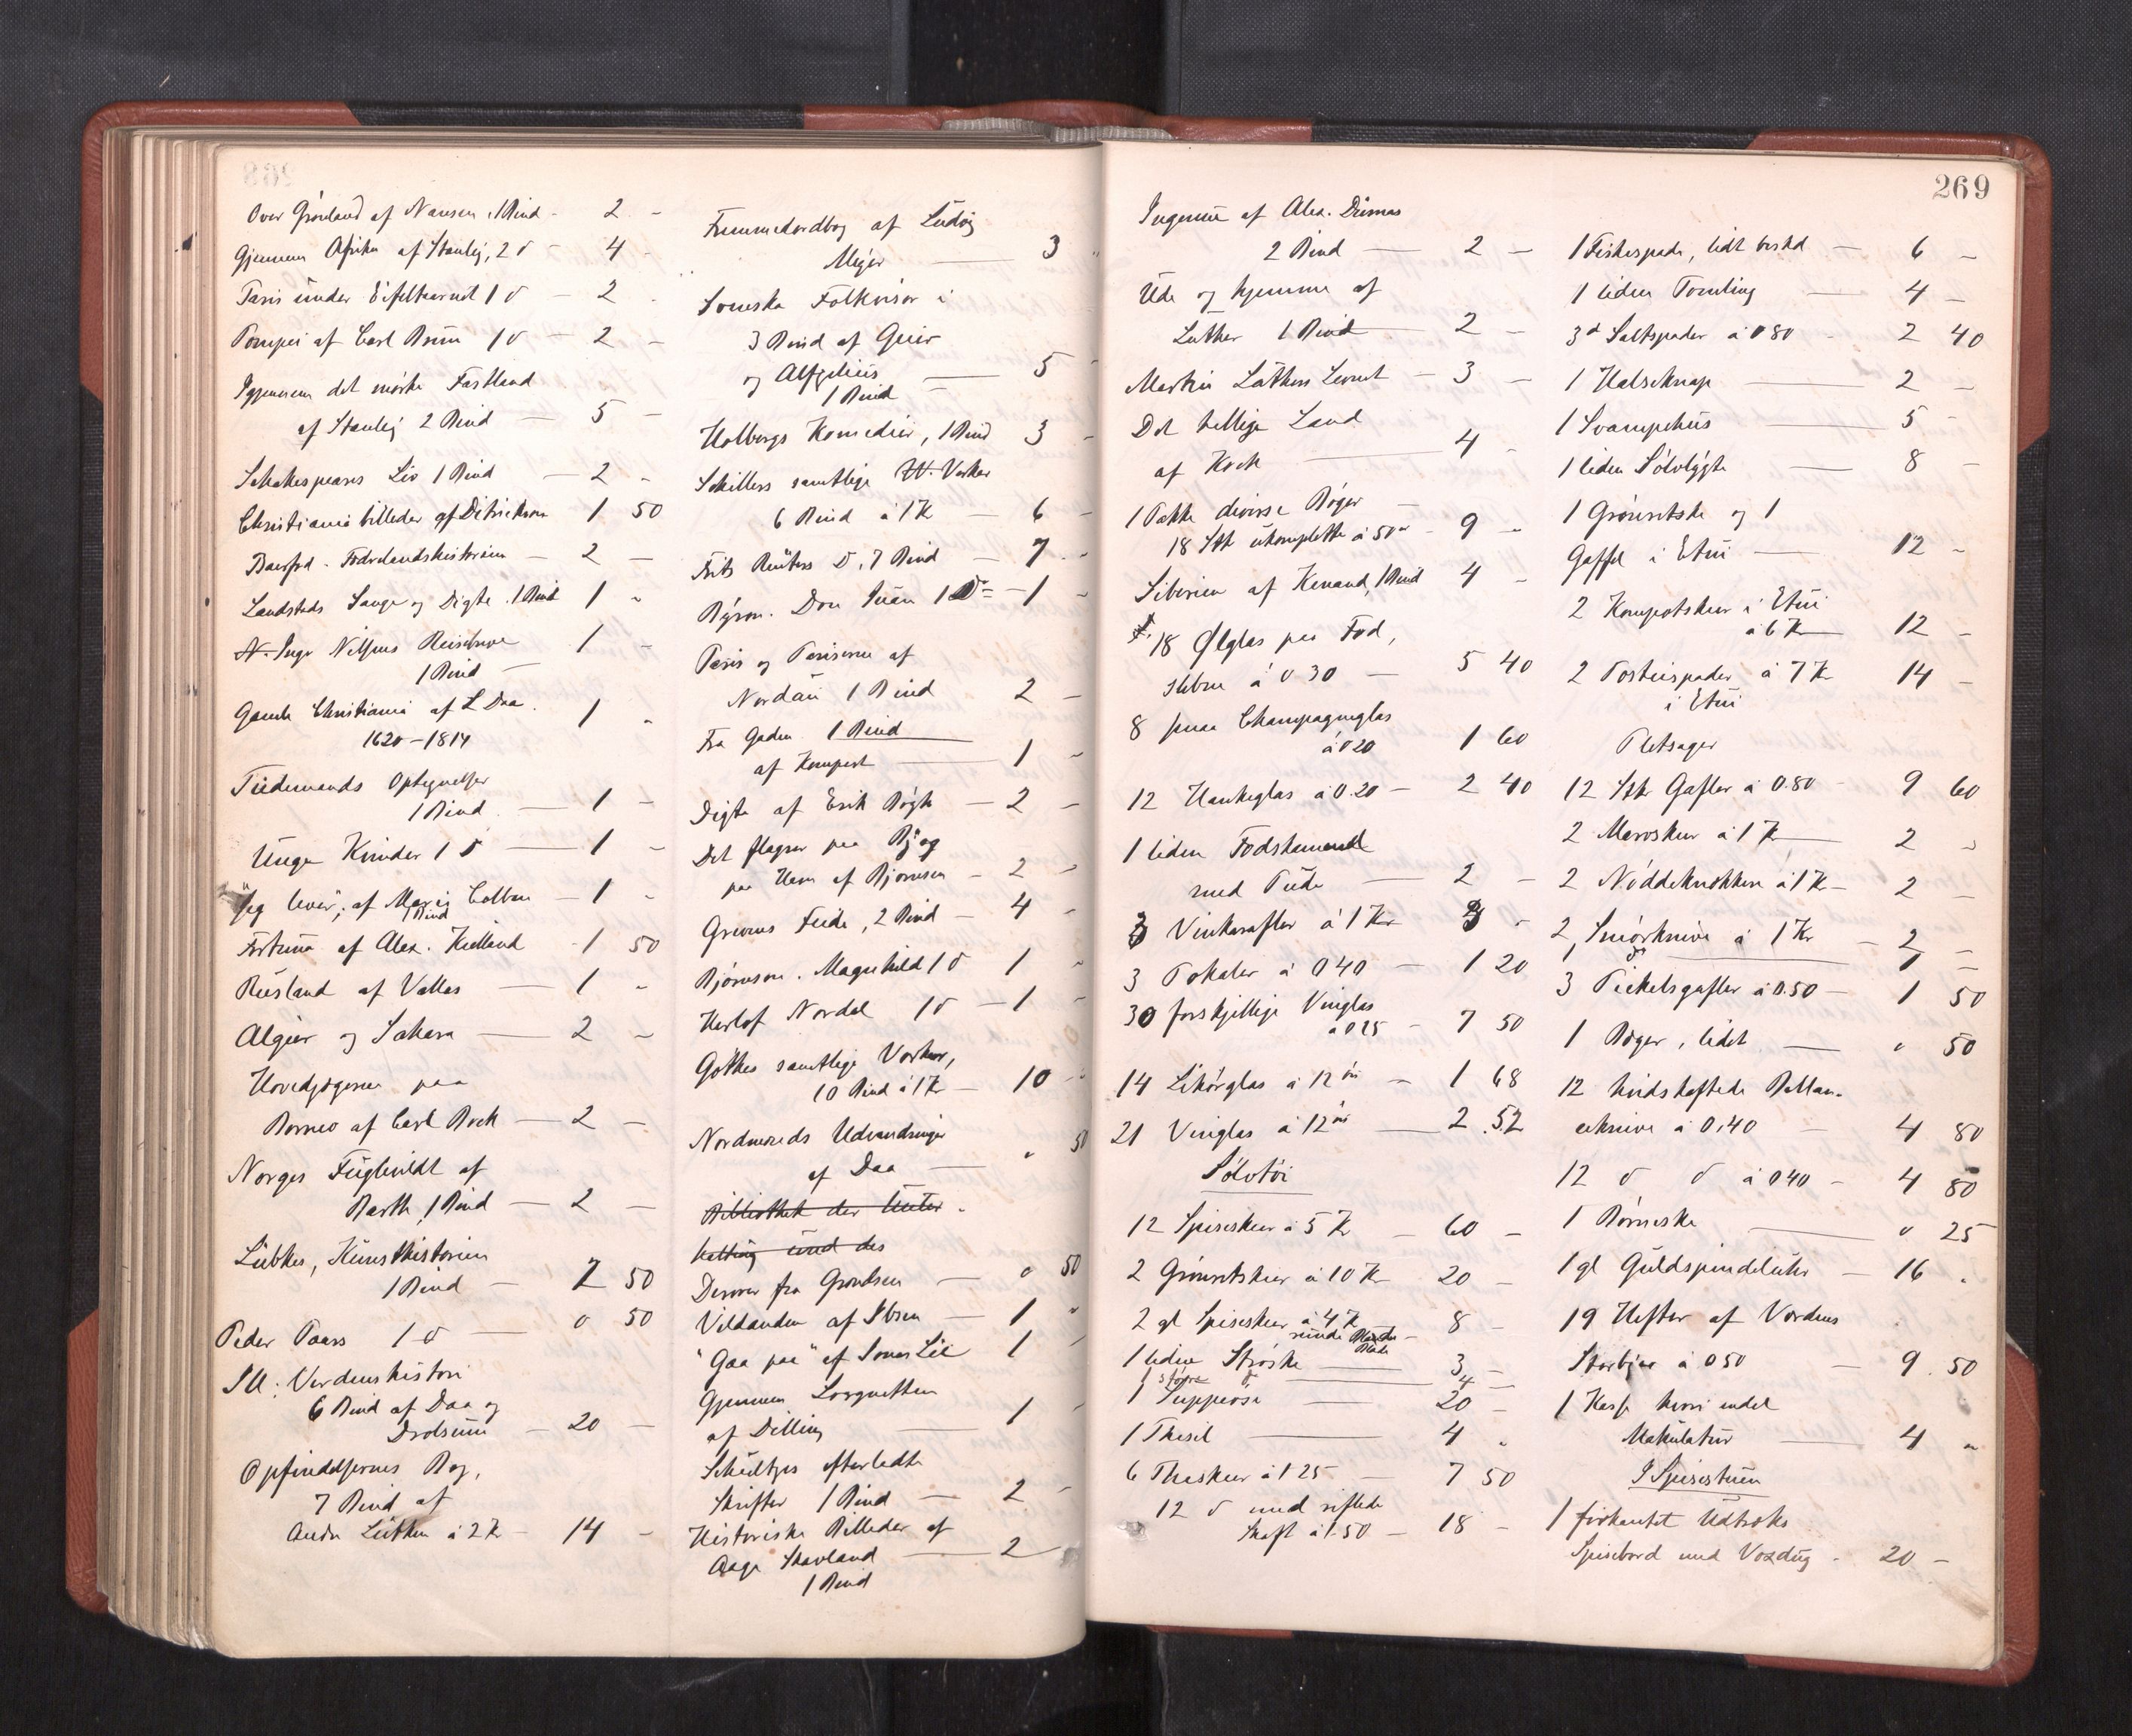 Over Grönland af Nansen, 1 Bind - 2 -
Gjennem Afrika af Stanley, 2 d - 4 -
Paris under Eifeltaarnet 1 d - 2 -
Pompei af Carl Bruun 1 d - 2 -
Igjennem det mörke Fastland
af Stanley 2 Bind - 5 -
Schakespeares Liv 1 Bind - 2 -
Christiania billeder af Ditrichson 1 50
Fædrelandshistorien - 2 -
Landstads Sange og Digte. 1 Bind 1 -
Inge Nilsens Reisebreve 1 -
1 Bind
Gamle Christiania af L Daa. 1 -
1620-1814
Tidemands Optegnelser
1 Bind - 1 -
Unge Kvinder 1 d - 1 -
"Jeg lever", af Marie Colban - 1 -
1 Bind
Fortuna af Alex. Kielland - 1 50
Rusland af Vallas - 1 -
Algier og Sahara - 2 -
Hovedjægerne paa
Borneo af Carl Bock - 2 -
Norges Fuglevildt af
Barth, 1 Bind - 2 -
Lübkes, Kunsthistorien
1 Bind - 7 50
Peder Paars 1 d - 0 50
Ill: Verdenshistori
6 Bind af Daa og
Drolsum - 20 -
Opfindelsernes Bog,
7 Bind af
André Lütken à 2 K - 14 -
Fremmedordbog af Ludvig
Meyer - 3 -
Svenska Folkvisor i
3 Bind af Geier
og Alfzelius - 5 -
1 Bind
Holbergs Komedier, 1 Bind 3 -
Schillers samtlige W. Verker
6 Bind à 1 K - 6 -
Frits Reuters D, 7 Bind - 7 -
Byron. Don Juan 1 D - 1 -
Paris og Pariserne af
Nordau 1 Bind 2 -
Fra Gaden 1 Bind
af Kompert - 1 -
Digte af Erik Bögh - 2 -
Det flager paa By og
paa Havn af Bjørnson - 2 -
Grevens Feide, 2 Bind - 4 -
Bjørnson. Magnhild 1 d 1 -
Herlof Nordal 1 d - 1 -
Göthes samtlige Værker,
10 Bind à 1 K - 10 -
Nordmænds Udvandringer
af Daa - 0 50
Bibliothek der Unter-
haltung und des
Derovre fra Grændsen - 0 50
Vildanden af Ibsen - 1 -
"Gaa paa" af Jonas Lie 1 -
Gjennem Lorgnetten
af Dilling - 1 -
Schultzes efterladte
Skrifter 1 Bind - 2 -
Historiske Billeder af
Aage Skavland - 2
1 Bind
269
Ingenue af Alex. Dumas
2 Bind - 2 -
Ude og hjemme af
Luther 1 Bind - 2 -
Martin Luthers Levnet - 3 -
Det hellige Land
af Kock - 4 -
1 Pakke diverse Bøger -
18 Stk ukomplette à 50 ør - 9 -
Siberien af Kenand, 1 Bind 4 -
18 Ølglas paa Fod,
slebne à 0 30 - 5 40
8 smaa Champagneglas
à 0 20 1 60
12 Hankeglas à 0.20 - 2 40
1 liden Fodskammel
med Pude - 2 -
3 Vinkarafler à 1 Kr 3 -
3 Pokaler à 0 40 - 1 20
30 forskjellige Vinglas
à 0 25 - 7 50
14 Likørglas à 12 ør - 1 68
21 Vinglas à 12 ør - 2.52
Sölvtöi
12 Spiseskeer à 5 K - 60 -
2 Grönsetskeer à 10 Kr 20 -
2 gl Spiseskeer à 4 K 8 -
runde Blade
1 liden Ströske - 3 -
1 större d - 4 -
1 Suppeøse - 20 -
1 Thesil - 4 -
6 Theskeer à 1 25 - 7 50
12 d med riflede
Skaft à 1.50 - 18 -
1 Fiskespade, lidt beskd - 6 -
1 liden Forneling - 4 -
3 d Saltspader à 0 80 - 2 40
1 Halseknap - 2 -
1 Svampehus - 5 -
1 liden Sölvlygte - 8 -
1 Grönsetske og 1
Gaffel i Etui - 12 -
2 Kompotskeer i Etui
à 6 K 12 -
2 Posteispader à 7 K 14 -
i Etui
Pletsager
12 Stk Gafler à 0.80 - 9 60
2 Marvskeer à 1 K 2 -
2 Nøddeknækkere à 1 K - 2 -
2 Smörknive à 1 Kr - 2 -
1 d - 1 -
3 Pickelsgafler à 0.50 - 1 50
1 Bæger, lidet - 0 50
12 hvidskaftede Ballan-
ceknive à 0.40 - 4 80
12 d d à 0 40 - 4 80
1 Barneske - 0 25
1 gl Guldspindeluhr - 16 -
19 Hefter af Verdens
Storbyer à 0 50 - 9.50
1 Kasse hvori endel
Makulatur - 4 -
I Spisestuen
1 firkantet Udtræks
Spisebord med Voxdug - 20 -